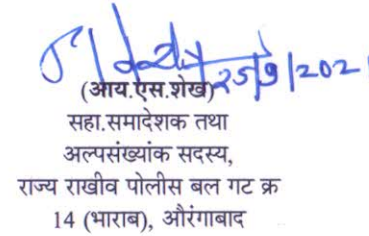 25/9/202
(आय.एस.शेख)
सहा.समादेशक तथा
अल्पसंख्यांक सदस्य,
राज्य राखीव पोलीस बल गट क्र
14 (भाराब), औरंगाबाद